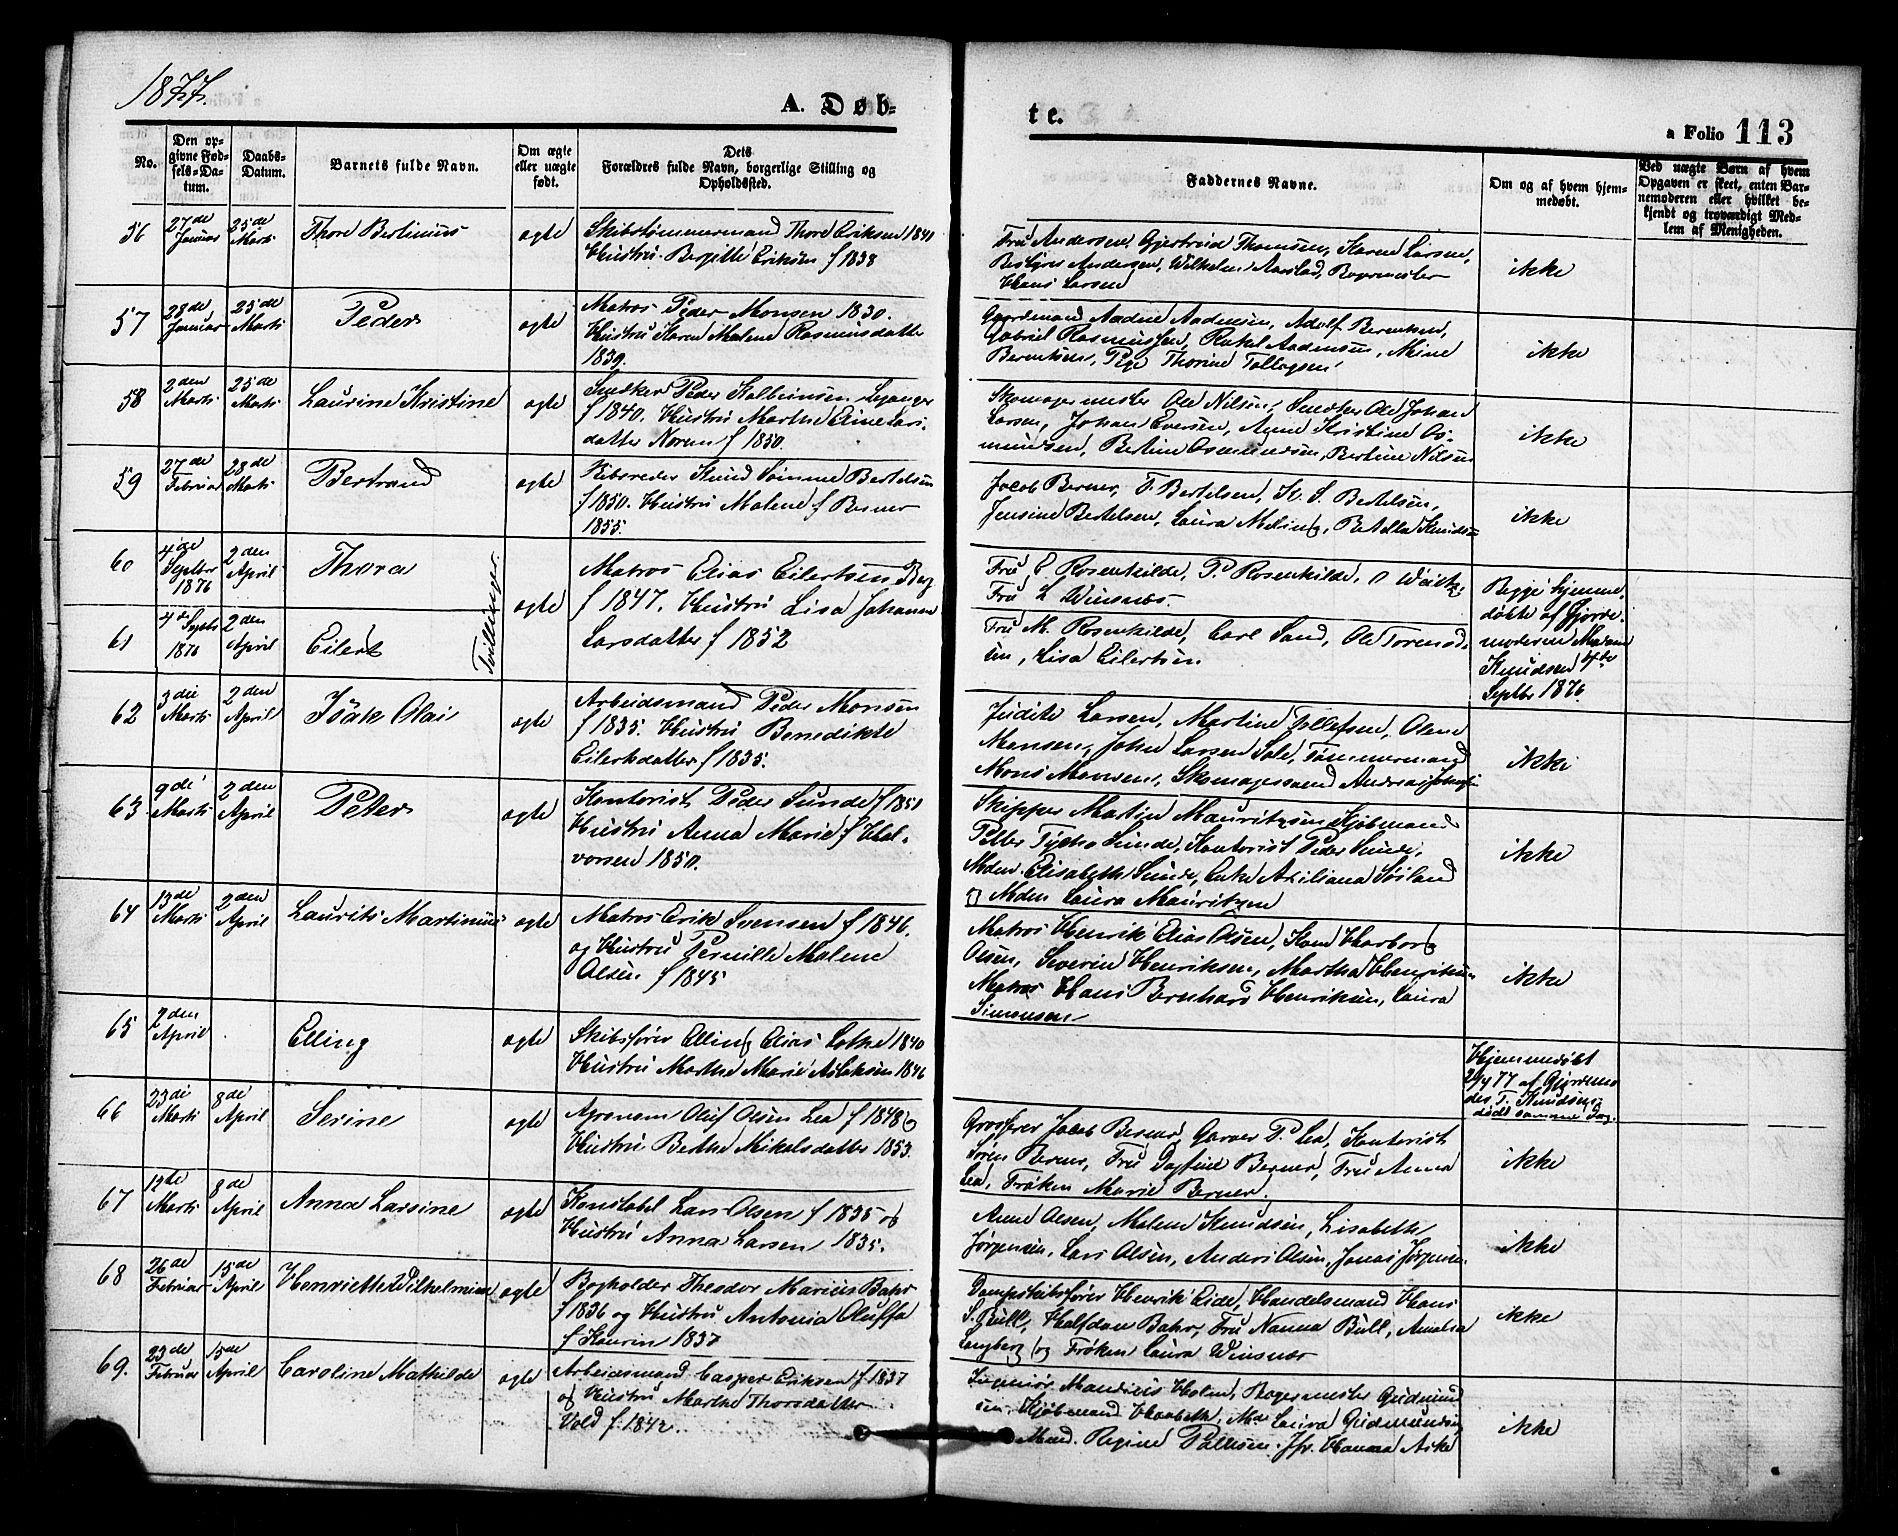 1877.
A. Døb-
te.
a Folio 113
No.
Den op-
givne Fød-
sels-Da-
tum.
Daabs-
Datum.
Barnets fulde Navn.
Om ægte
eller uægte
født.
Dets
Forældres fulde Navn, borgerlige Stilling og
Opholdssted.
Faddernes Navne.
Om og af hvem hjem-
medøbt.
Ved uægte Børn af hvem
Opgaven er skeet, enten Bar-
nemoderen eller hvilket be-
kjendt og troværdigt Med-
lem af Menigheden.
56
27de
Januar
25de
Marts
Thore Bertinius
ægte
Skibstømmermand Thore Eriksen 1841
Hustru Bergitte Eriksen f 1838
Fru Andersen, Gjertruid Thomsen, Karen Larsen,
Andersen, Wilhelm Aarstad, Bagermester
Hans Larsen
ikke
57
28de
Januar
25de
Marts
Peder
ægte
Matros Peder Monsen 1830.
Hustru Karen Malene Rasmusdatter
1839.
Gaardmand Aadne Aadnesen, Adolf Berentsen,
Gabriel Rasmussen, Rakel Aadnesen, Mine
Berentsen, Pige Thorine Tollagsen
ikke
58
2den
Marts
25de
Marts
Laurine Kristine
ægte
Snedker Peder Kolbeinsen
f 1840. Hustru Marthe Eline Lars-
datter Noren f 1850.
Skomagermester Ole Nilsen, Snedker Ole Johan
Larsen, Johan Eversen, Anne Kristine Os-
mundsen, Bertine Osmundsen, Bertine Nilsen
ikke
59
27de
Februar
28de
Marts
Bertrand
ægte
Skibsreder Knud Sømme Bertelsen
f 1850. Hustru Malene f Berner
1855.
Jacob Berner, T. Bertelsen, K. S. Bertelsen,
Jensine Bertelsen, Laura Meling, Petella Knudsen
ikke
60
4de
Septbr
1876
2den
April
Thora
Tvillinger.
ægte
Matros Elias Eilertsen Berg
f 1847. Hustru Lisa Johanne
Larsdatter f 1852
Fru C. Rosenkilde, P. Rosenkilde,
Fru L Winsnæs.
Begge hjemme-
døbte af Gjorde-
moderen Madam
Knudsen 4de
Septbr 1876.
61
4de Septbr
1876
2den
April
Eilert
Fru M. Rosenkilde, Carl Sand, Ole Tormod-
sen, Lisa Eilertsen.
62
3die
Marts
2den
April
Isak Olai
ægte
Arbeidsmand Peder Monsen
f 1835. Hustru Benedikte
Eilertsdatter f 1835.
Judite Larsen, Martine Tollefsen, Olene
Monsen, John Larsen Sole, Tømmermand
Mons Monsen, Skomagersvend Andreas
ikke
63
9de
Marts
2den
April
Peter
ægte
Kontorist Peder Sunde f 1851
Hustru Anna Marie f Hal-
vorsen 1850.
Skipper Martin Mauritzen, Kjøbmand
Peter Tycho Sunde, Kontorist Peder Sunde,
Mdm. Elisabeth Sunde, Enke Axiliana Søiland
og Mdm. Laura Mauritzen
ikke
64
13de
Marts
2den
April
Laurits Martinius
ægte
Matros Erik Svensen f 1846.
og Hustru Pernille Malene
Olsen f 1845
Matros Henrik Elias Olsen, Kone
Olsen, Severin Henriksen, Martha Henriksen
Matros Hans Bernhard Henriksen, Laura
Simonsen
ikke
65
2den
April
Elling
ægte
Skibsfører Elling Elias Lothe 1840
Hustru Marthe Marie Aslaksen 1846
Hjemmedøbt
2/4 77 af Gjordemo-
des T. Knudsen,
død samme Dag.
66
23de
Marts
8de
April
Serine
ægte
Agronom Oluf Olsen Lea f 1848 og
Hustru Berthe Mikalsdatter 1853.
Grosserer Jacob Berner, Garver P. Lea, Kontorist
Søren Berner, Fru Dagfine Berner, Fru Anna
Lea, Frøken Marie Berner.
ikke
67
12te
Marts
8de
April
Anna Larsine
ægte
Konstabel Lars Olsen f 1835 og
Hustru Anna Larsen 1835.
Anne Olsen, Malene Knudsen, Lisabeth
Jørgensen, Lars Olsen, Anders Olsen, Jonas Jørgensen.
ikke
68
26de
Februar
15de
April
Henriette Wilhelmine
ægte
Bogholder Theodor Marius Bahr
f 1836 og Hustru Antonia Oluffa
f Kaurin 1837
Dampskibsfører Henrik Eide, Handelsmand Hans
S. Bull, Halfdan Bahr, Fru Nanna Bull, Amalia
Langberg og Frøken Laura Winsnæs
ikke
69.
23de
Februar
15de
April
Caroline Mathilde
ægte
Arbeidsmand Casper Eriksen f 1837
og Hustru Marthe Thorsdatter
Vold f. 1842.
Ingeniør Mauritius Holm, Bagermester Gudmund-
sen, Kjøbmand Haabeth, Mdm Laura Gudmundsen,
Mad. Regine Pallesen, Jfr. Hanna Aske
ikke